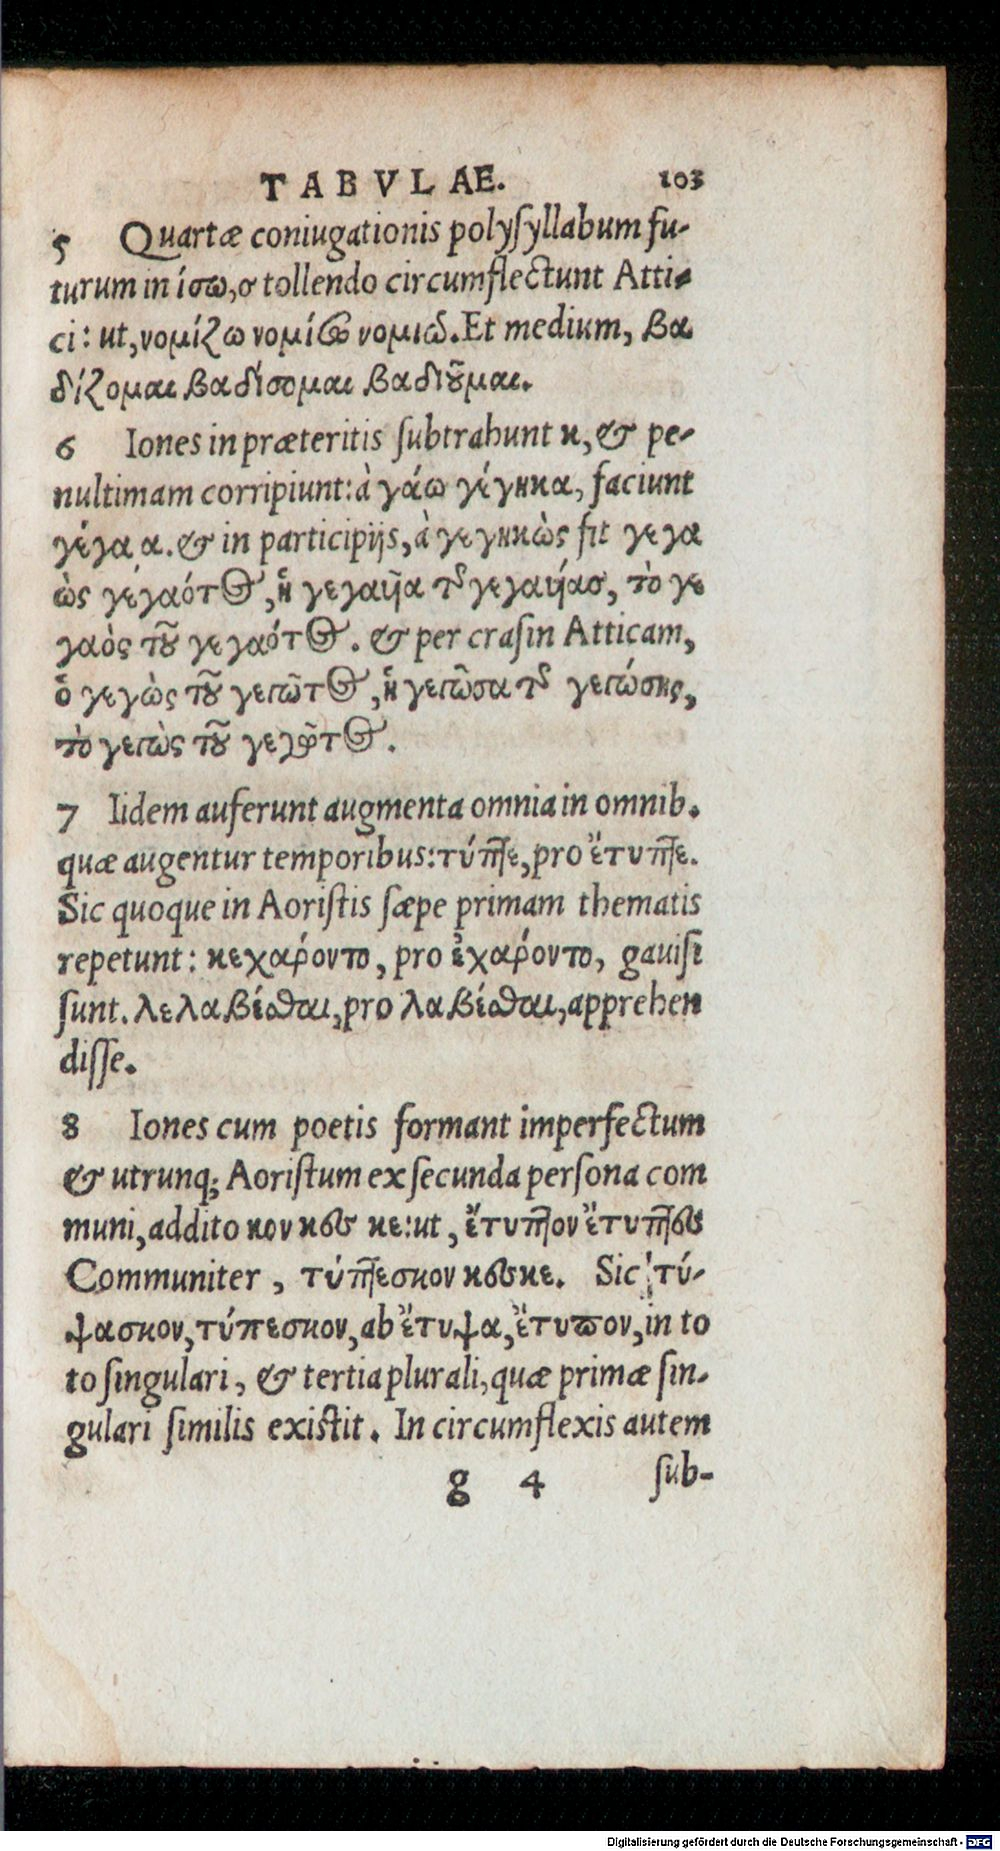 TABVLAE. 103
5 Quartæ coniugationis polysyllabum fu-
turum in ίσω, σ tollendo circumflectunt Atti-
ci: ut, νομίζω νομίσω νομιῶ. Et medium, βα
δίζομαι βαδίσομαι βαδιοῦμαι.
6 Iones in præteritis subtrahunt κ, & pe-
nultimam corripiunt: à γάω γέγηκα, faciunt
γέγαα. & in participijs, à γεγηκὼς fit γεγα
ὼς γεγαότος, ἡ γεγαυῖα τῆς γεγαυίας, τὸ γε
γαὸς τοῦ γεγαότος. & per crasin Atticam,
ὁ γεγὼς τοῦ γεγῶτος, ἡ γεγῶσα τῆς γεγώσης,
τὸ γεγὼς τοῦ γεγῶτος.
7 Iidem auferunt augmenta omnia in omnib.
quæ augentur temporibus: τύπτε, pro ἔτυπτε.
Sic quoque in Aoristis sæpe primam thematis
repetunt: κεχάροντο, pro ἐχάροντο, gauisi
sunt. λελαβέσθαι, pro λαβέσθαι, apprehen
disse.
8 Iones cum poetis formant imperfectum
& utrunq; Aoristum ex secunda persona com
muni, addito κον κες κε: ut, ἔτυπτον ἔτυπτες
Communiter, τύπτεσκον κεςκε. Sic τύ-
ψασκον, τύπεσκον, ab ἔτυψα, ἔτυπον, in to
to singulari, & tertia plurali, quæ primæ sin-
gulari similis existit. In circumflexis autem
g 4 sub-
Digitalisierung gefördert durch die Deutsche Forschungsgemeinschaft - DFG